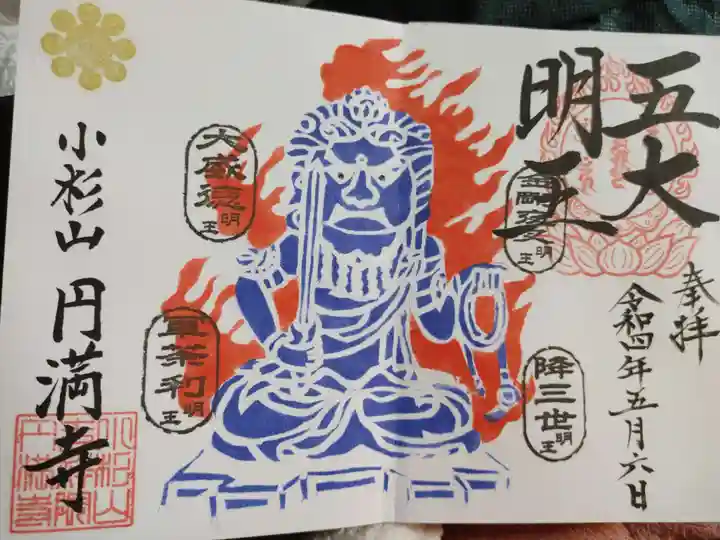 五大
明王
奉拝
令和四年五月六日
金剛夜叉明王
降三世明王
大威徳明王
軍荼利明王
小杉山 円満寺